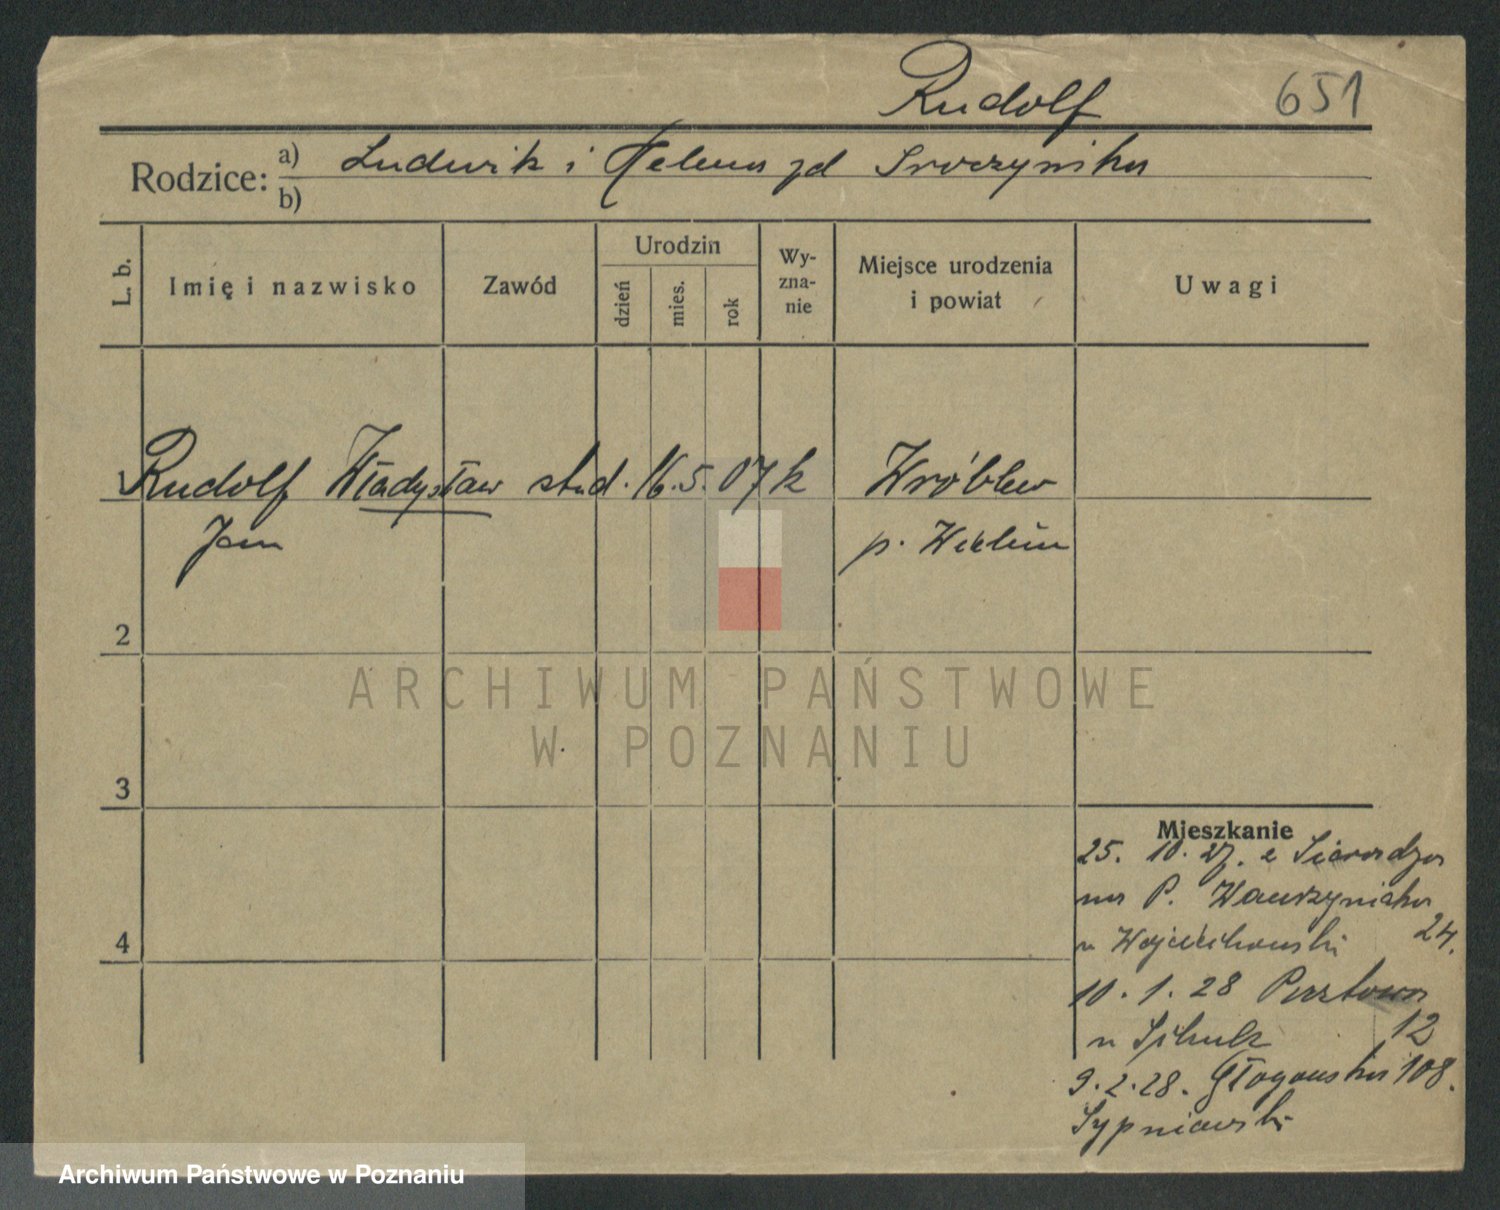 Rudolf 651
Rodzice: a) Ludwik i Helena zd
b)
L. b. Imię i nazwisko Zawód Urodzin dzień mies. rok Wy-zna-nie Miejsce urodzenia i powiat Uwagi
1 Rudolf Władysław stud. 16. 5. 07 k Wróblew
Jan p. Wieluń
2
ARCHIWUM PAŃSTWOWE
W POZNANIU
3
Mieszkanie
25. 10. 27. z Sieradza
na P. Wawrzyniaka
24.
u Wojciechowski
10. 1. 28 Pocztowa
u Schulz 12
9. 2. 28. Głogowska 108.
Sypniewski
4
Archiwum Państwowe w Poznaniu